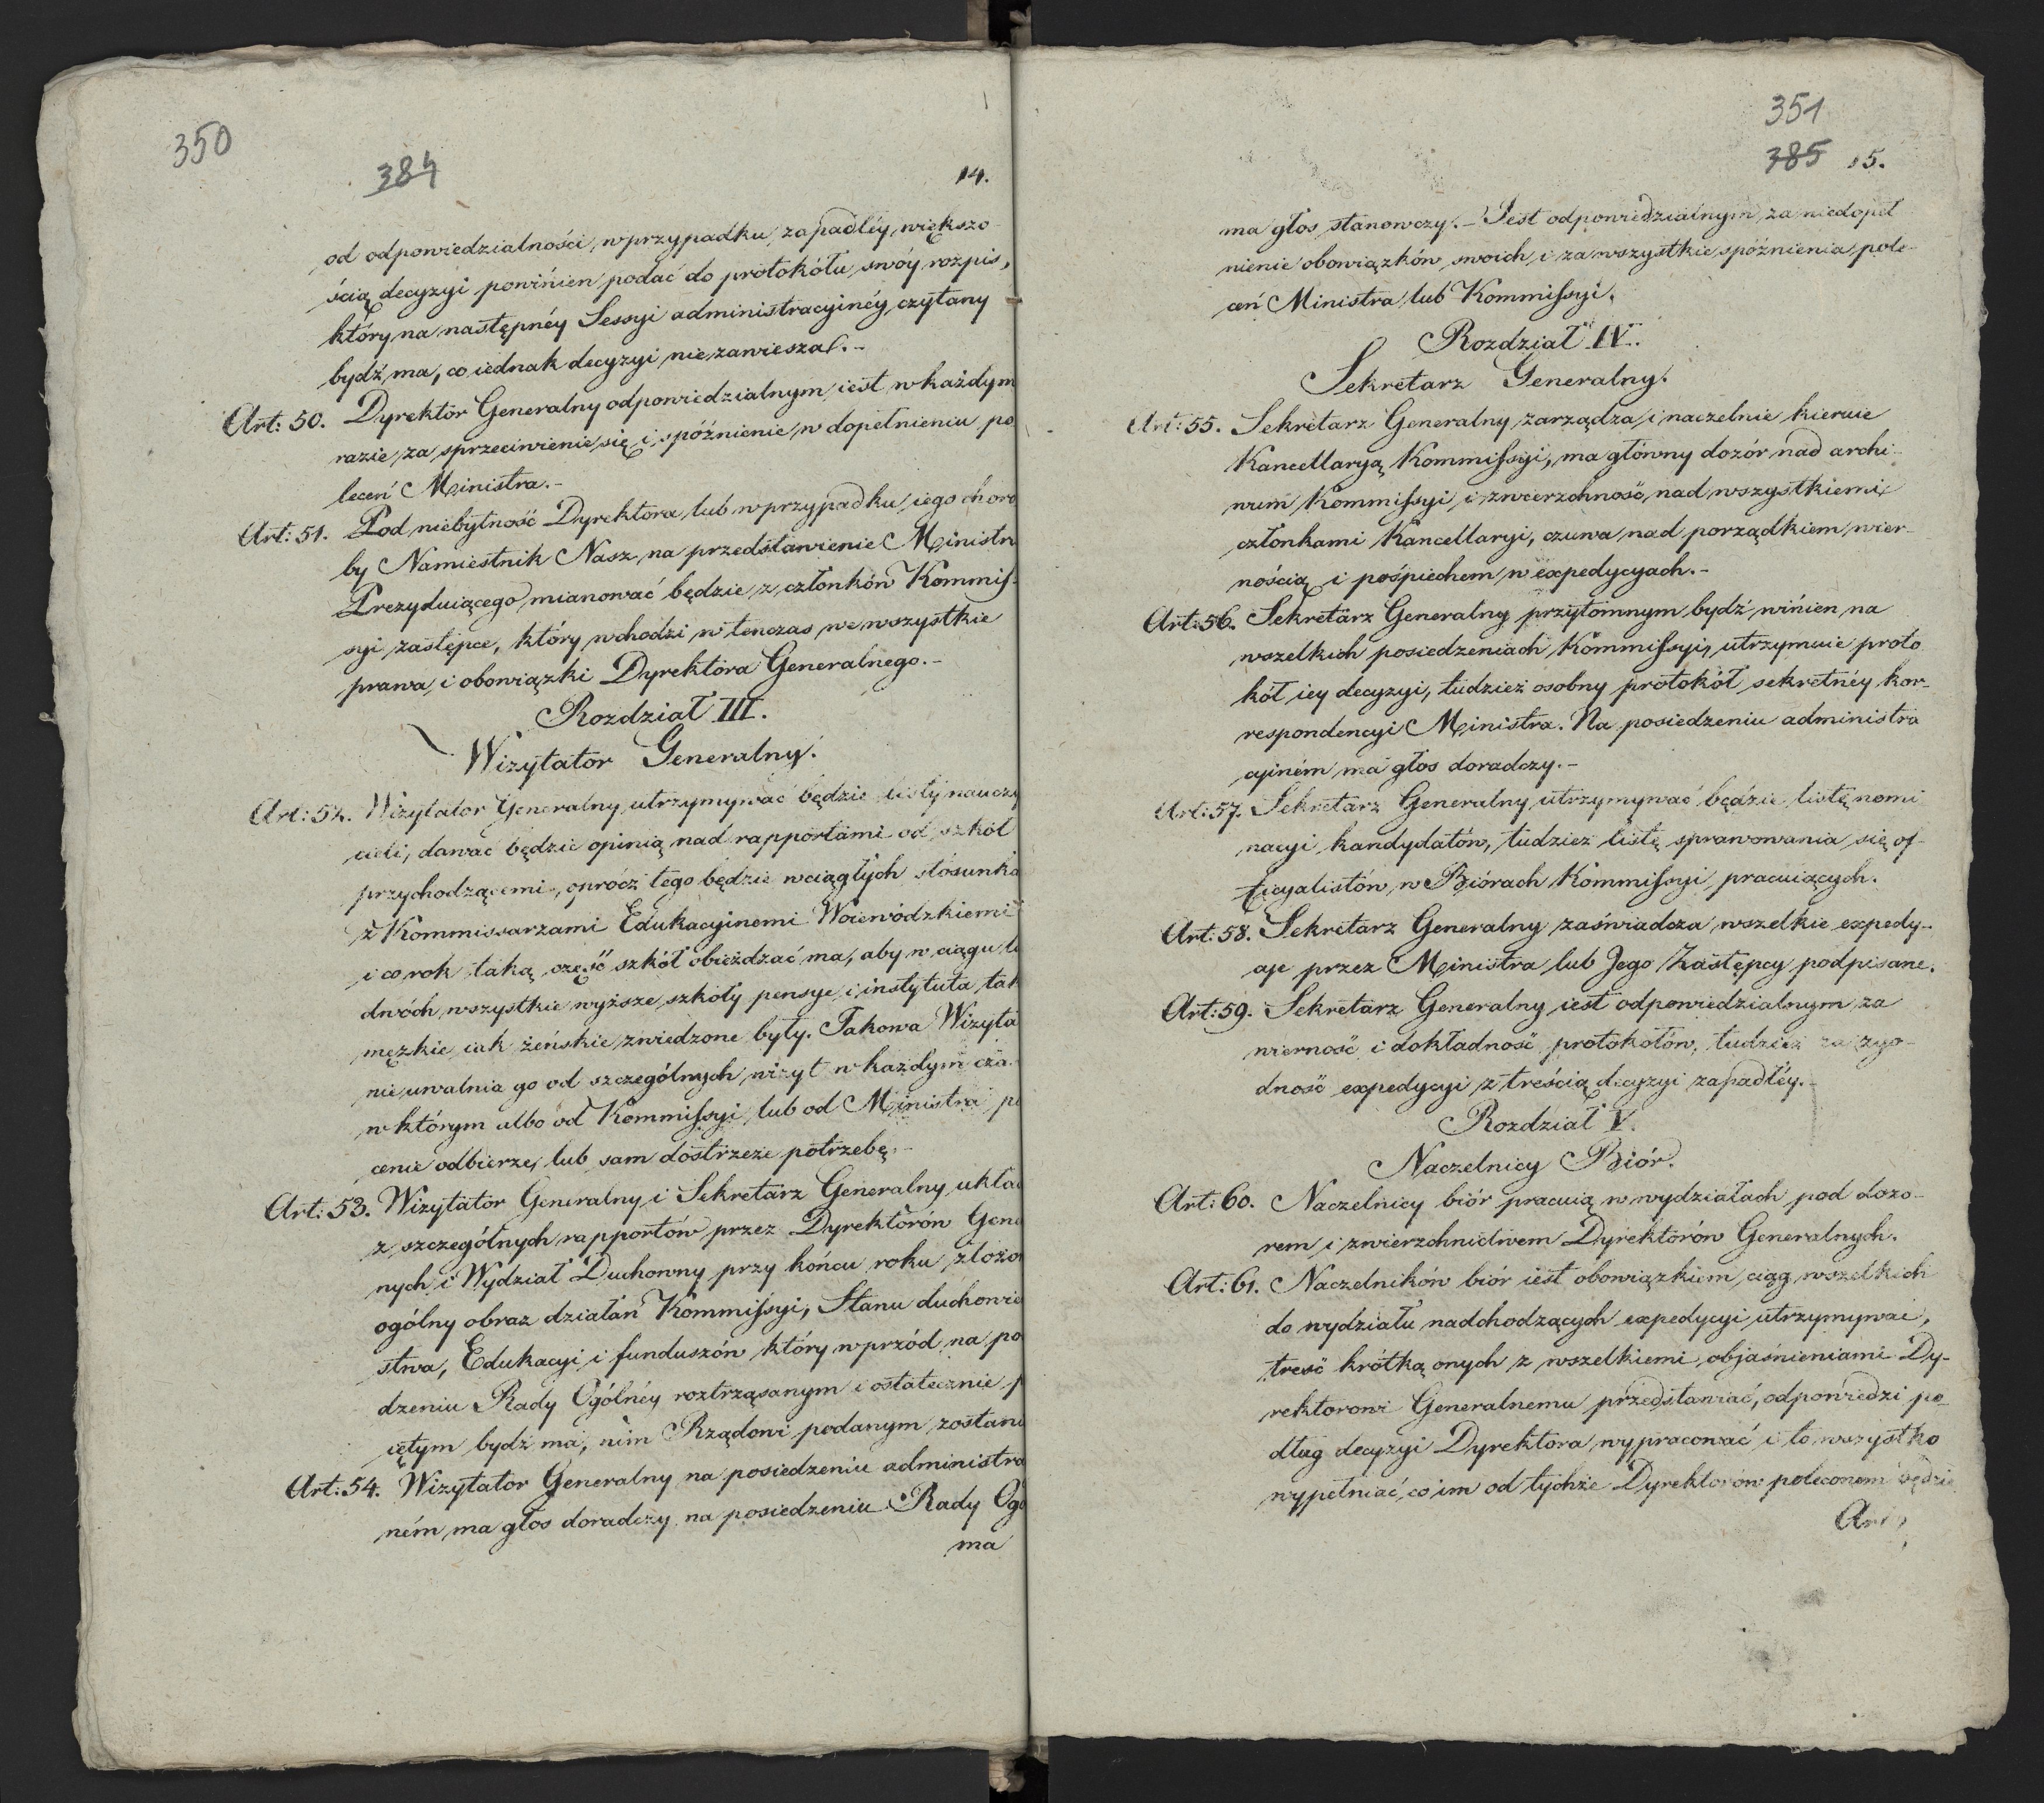 350
384
14.
od odpowiedzialności, w przypadku zapadłéy większo-
ścią decyzyi powinien podać do protokółu swóy rozpis,
który na następnéy Sessyi administracyinéy czytany
bydź ma, co iednak decyzyi nie zawiesza.-
Art: 50. Dyrektor Generalny odpowiedzialnym iest w każdym
razie za sprzeciwienie się i spóźnienie w dopełnieniu po
leceń Ministra.-
Art: 51. Pod niebytność Dyrektora lub w przypadku iego choro
by Namiestnik Nasz na przedstawienie Ministra
Prezyduiącego mianować będzie z członków Kommis-
syi zastępce, który wchodzi w tenczas we wszystkie
prawa i obowiązki Dyrektora Generalnego.-
Rozdział III.
Wizytator Generalny.
Art: 52. Wizytator Generalny utrzymywać będzie listy nauczy
cieli, dawać będzie opinią nad rapportami od szkół
przychodzącemi, oprócz tego będzie w ciągłych stosunka
z Kommissarzami Edukacyinemi Woiewódzkiemi
i co rok taką część szkół obieżdżać ma, aby w ciągu l
dwóch wszystkie wyższe szkoły pensye i instytuta tak
męzkie iak żeńskie zwiedzone były. Takowa Wizyta
nie uwalnia go od szczególnych wizyt w każdym cza-
w którym albo od Kommissyi lub od Ministra po
cenie odbierze, lub sam dostrzeże potrzebę.-
Art: 53. Wizytator Generalny i Sekretarz Generalny układ
z szczególnych rapportów przez Dyrektorów Gene
nych i Wydział Duchowny przy końcu roku złożo
ogólny obraz działań Kommissyi, Stanu duchowie
stwa, Edukacyi i funduszów który wprzód na po
dzeniu Rady Ogólnéy roztrząsanym i ostatecznie p
iętym bydź ma, nim Rządowi podanym zostani
Art: 54. Wizytator Generalny na posiedzeniu administra
ném ma głos doradczy na posiedzeniu Rady Ogó
ma
351
385 15.
ma głos stanowczy.- Jest odpowiedzialnym za niedopeł
nienie obowiązków swoich i za wszystkie spóźnienia pole-
ceń Ministra lub Kommissyi.
Rozdział IV.
Sekretarz Generalny.
Art: 55. Sekretarz Generalny zarządza i naczelnie kieruie
Kancellaryą Kommissyi, ma główny dozór nad archi-
wum Kommissyi i zwierzchność nad wszystkiemi
członkami Kancellaryi, czuwa nad porządkiem, wier-
nością i pośpiechem w expedycyach.-
Art: 56. Sekretarz Generalny przytomnym bydź winien na
wszelkich posiedzeniach Kommissyi, utrzymuie proto
kół iey decyzyi, tudzież osobny protokół sekretnéy kor-
respondencyi Ministra. Na posiedzeniu administra
cyiném ma głos doradczy.-
Art: 57. Sekretarz Generalny utrzymywać będzie listę nomi
nacyi kandydatów, tudzież listę sprawowania się of-
ficyalistów w Biórach Kommissyi pracuiących.
Art: 58. Sekretarz Generalny zaświadcza wszelkie expedy-
cye przez Ministra lub Jego Zastępcy podpisane.
Art: 59. Sekretarz Generalny iest odpowiedzialnym za
wierność i dokładność protokołów, tudzież za zgo-
dność expedycyi z treścią decyzyi zapadłéy.-
Rozdział V.
Naczelnicy Biór.
Art: 60. Naczelnicy biór pracuią w wydziałach pod dozo-
rem i zwierzchnictwem Dyrektorów Generalnych.
Art: 61. Naczelników biór iest obowiązkiem, ciąg wszelkich
do wydziału nadchodzących expedycyi utrzymywać,
treść krótką onych z wszelkiemi objaśnieniami Dy-
rektorowi Generalnemu przedstawiać, odpowiedzi po-
dług decyzyi Dyrektora wypracować i to wszystko
wypełniać, co im od tychże Dyrektorów poleconem będzie
Art